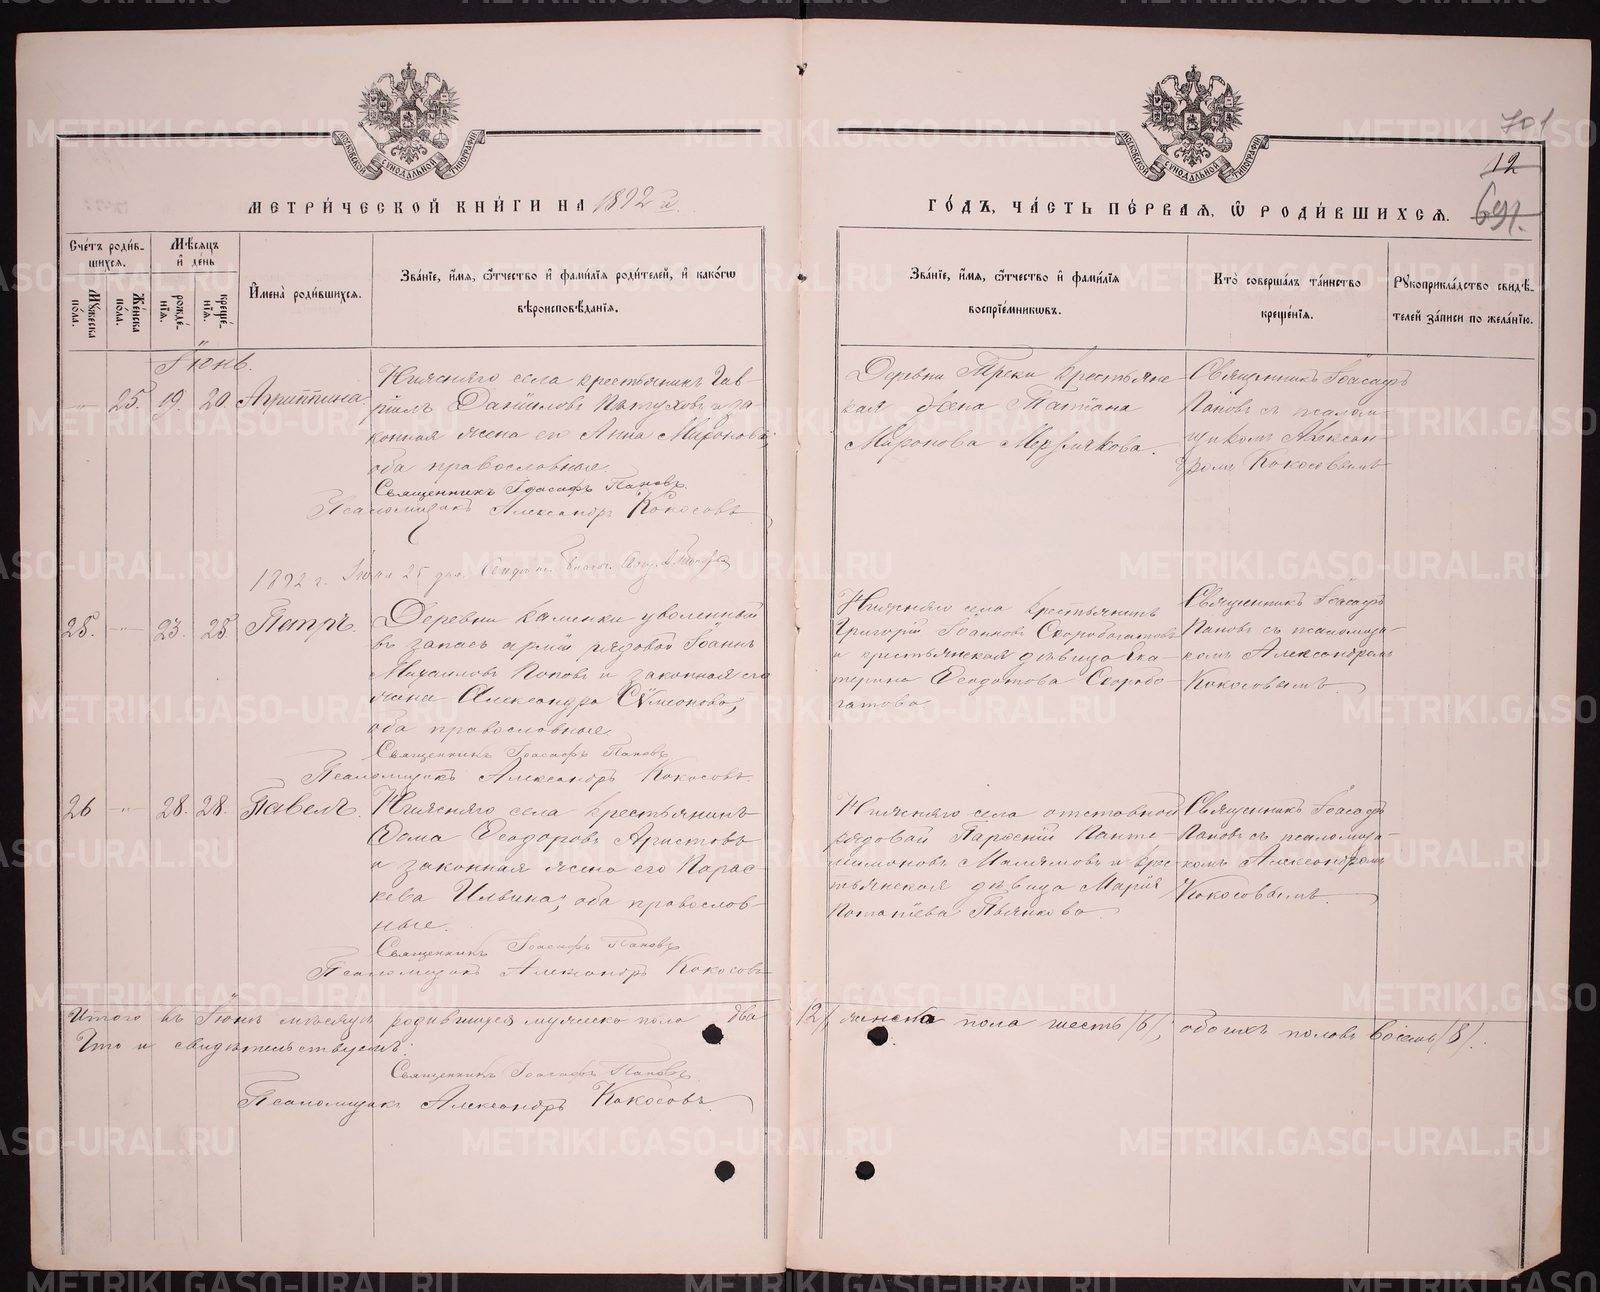 МОСКОВСКОЙ СѴНОДАЛЬНОЙ ТИПОГРАФІИ
МОСКОВСКОЙ СѴНОДАЛЬНОЙ ТИПОГРАФІИ
701
12
691.
МЕТРИ́ЧЕСКОЙ КНИ́ГИ НА 1892 й
ГО́ДЪ, ЧА́СТЬ ПЕ́РВАЯ, Ѡ РОДИ́ВШИХСЯ.
Сче́тъ роди́в-
шихся.
Мꙋ́жеска по́ла.
Же́нска по́ла.
Мѣ́сяцъ
и҆ де́нь
рожде́-
нїя.
креще́-
нїя.
И҆мена̀ роди́вшихся.
Зва́нїе, и҆́мя, ѻ҆́тчество и҆ фами́лїя роди́телей, и҆ како́гѡ
вѣроисповѣ́данїя.
Зва́нїе, и҆́мя, ѻ҆́тчество и҆ фами́лїя
воспрїе́мникѡвъ.
Кто̀ соверша́лъ та́инство
креще́нїя.
Рꙋкоприкла́дство свидѣ́-
телей за́писи по жела́нїю.
Іюнь.
„ 25. 19. 20. Агриппина
Ниясняго села крестьянинъ Гав-
рїилъ Данїиловъ Пѣтуховъ и за-
конная жена его Анна Миронова,
оба православные.
Священникъ Іоасафъ Пановъ.
Псаломщикъ Александръ Кокосовъ
Деревни Треки крестьян-
ская Татіана
Миронова
Священникъ Іоасафъ
Пановъ съ псалом-
щикомъ Алексан-
дромъ Кокосовымъ
1892 г. Іюня 25 дня.
25. „ 23. 25. Петръ.
Деревни Каменки уволенный
въ запасъ арміи рядовой Іоаннъ
Михаиловъ Поповъ и законная его
жена Александра Сѵмеонова,
оба православные.
Священникъ Іоасафъ Пановъ
Псаломщикъ Александръ Кокосовъ.
села крестьянинъ
Григорій Іоанновъ Скоробогатовъ
и крестьянская дѣвица Ека-
терина Ѳеодотова Скоробо-
гатова
Священникъ Іоасафъ
Пановъ съ псаломщи-
комъ Александромъ
Кокосовымъ
26 „ 28. 28. Павелъ.
Ниясняго села крестьянинъ
Ѳома Ѳеодоровъ Аристовъ
и законная жена его Парас-
кева Ильина, оба православ-
ные.
Священникъ Іоасафъ Пановъ
Псаломщикъ Александръ Кокосовъ
Ниясняго села отставной
рядовой Панте-
лимоновъ и крес-
тьянская дѣвица Марія
Потапіева
Священникъ Іоасафъ
Пановъ съ псаломщи-
комъ Александромъ
Кокосовымъ.
Итого въ Іюнѣ мѣсяцѣ родившихся мужеска пола два /2/ женска пола шесть /6/, обоихъ половъ восемь /8/.
Что и свидѣтельствуемъ:
Священникъ Іоасафъ Пановъ.
Псаломщикъ Александръ Кокосовъ
METRIKI.GASO-URAL.RU